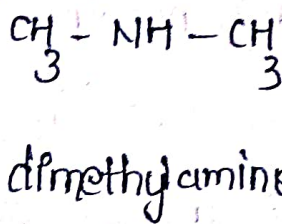 CH3 - NH - CH3
dimethylamine